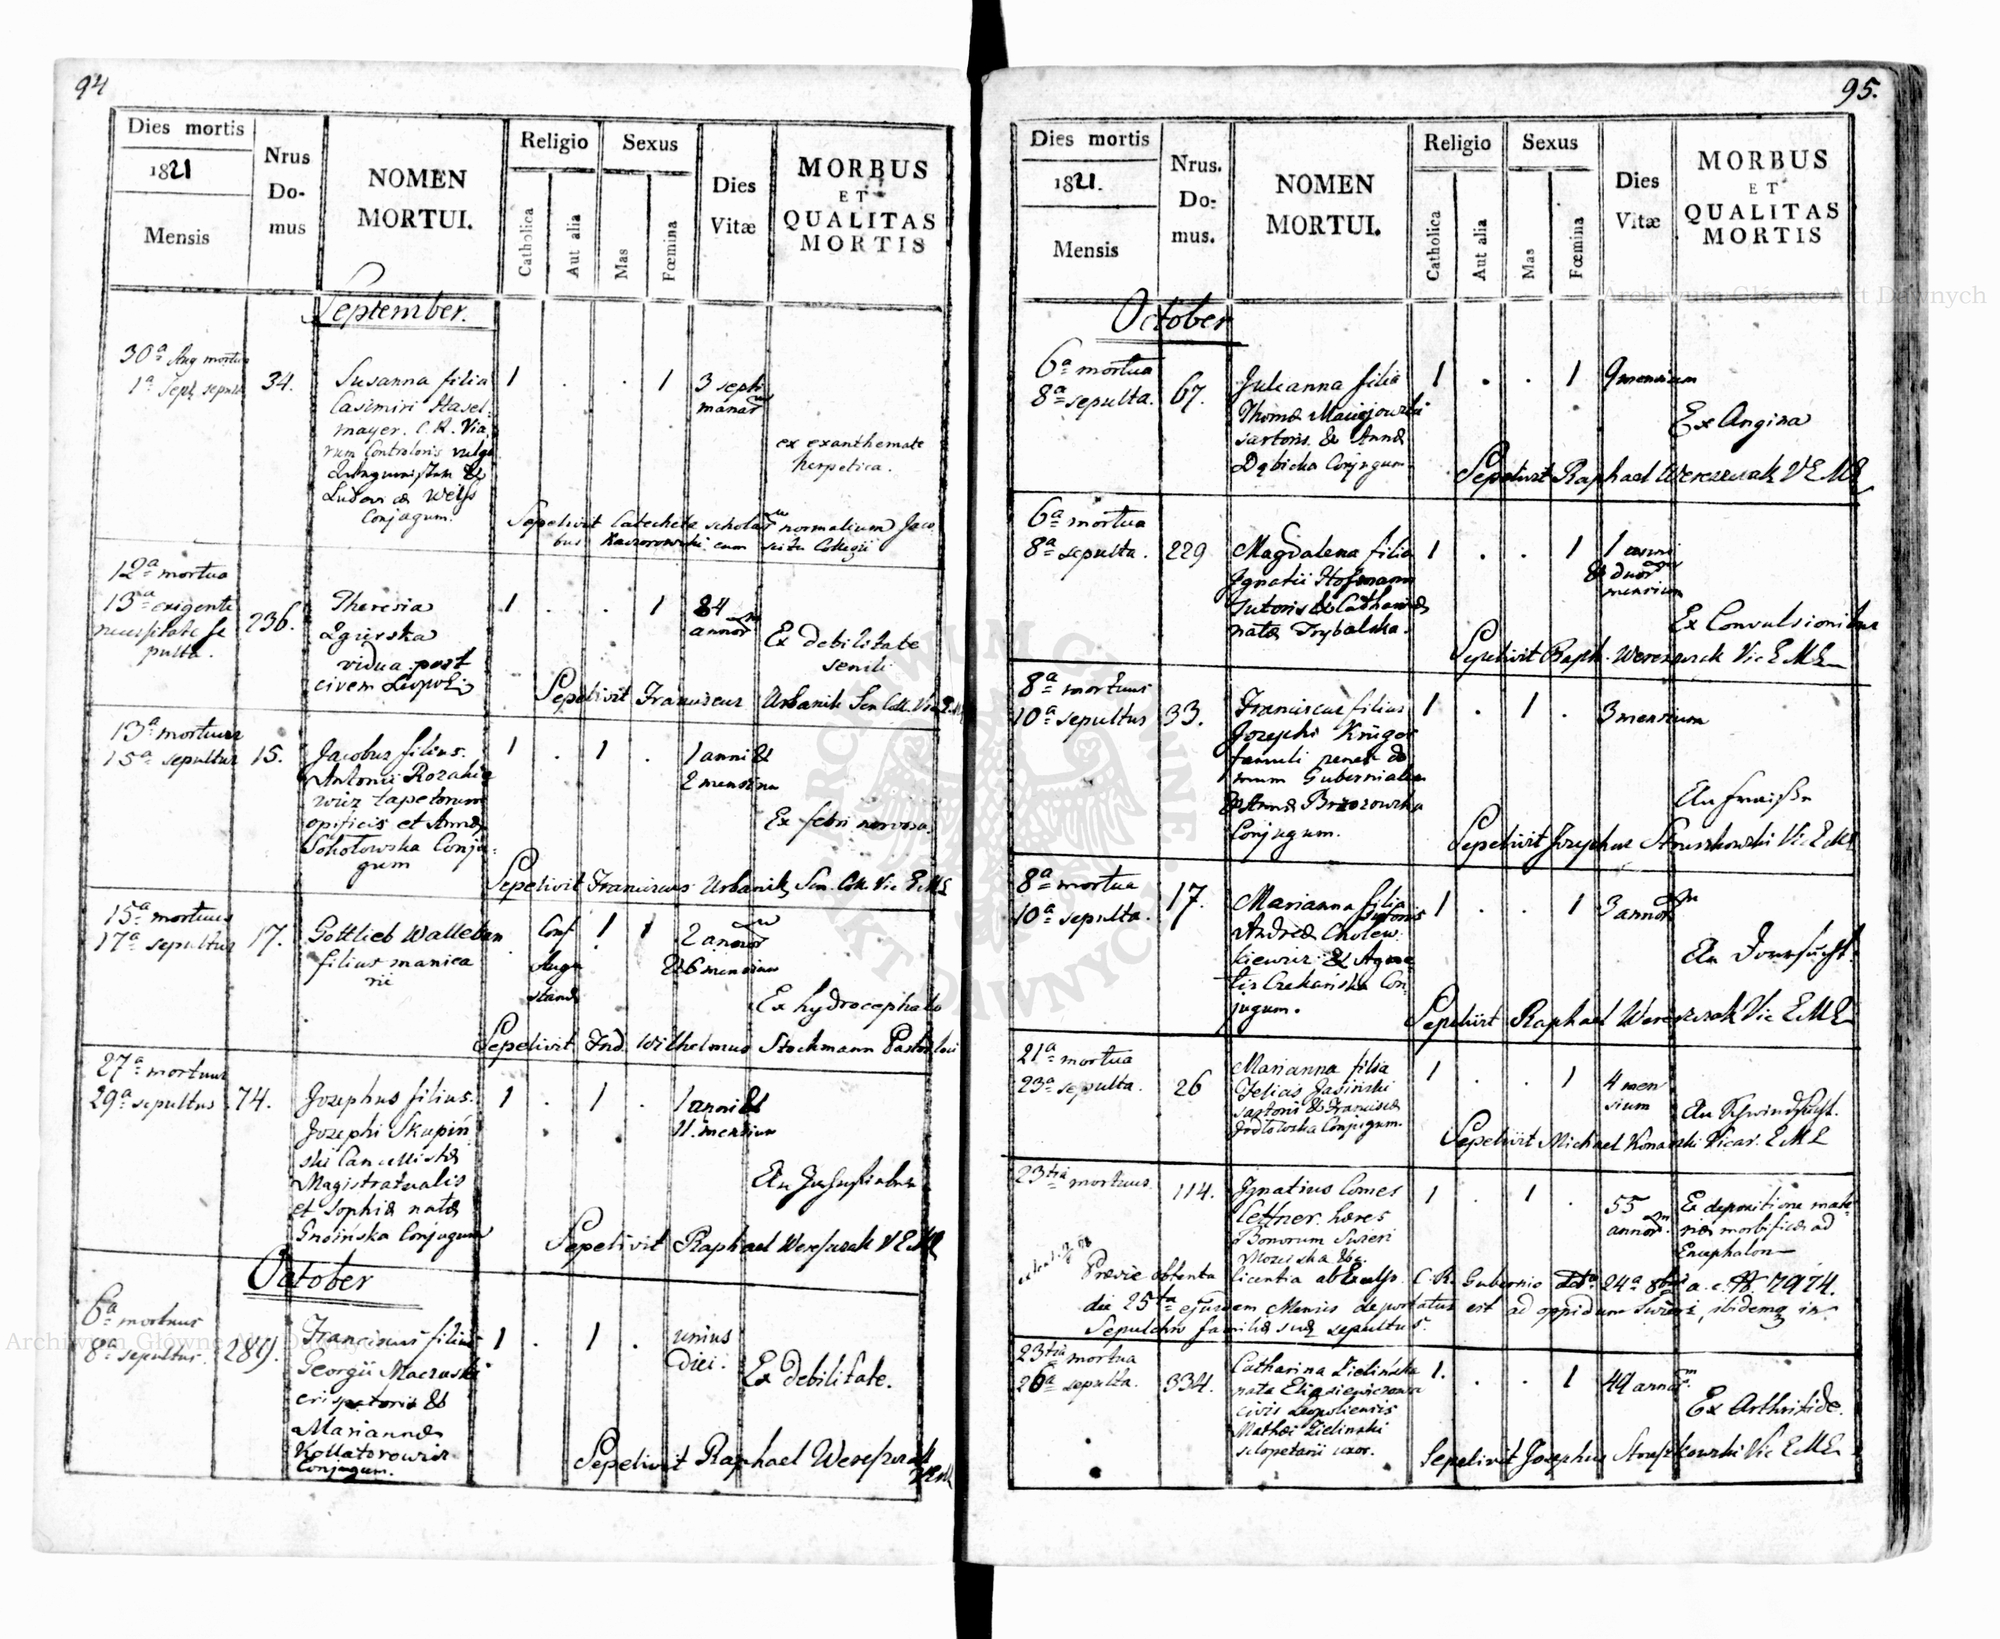 94
Dies mortis
1821
Mensis
Nrus
Do-
mus
NOMEN
MORTUI.
Religio
Catholica
Aut alia
Sexus
Mas
Fœmina
Dies
Vitæ
MORBUS
ET
QUALITAS
MORTIS
September.
30ª Aug mortua
1ª Sept sepulta
34.
Susanna filia
Casimiri Hasel-
mayer. C. R. Via-
rum Controloris vulgo
&
Ludovicæ Weiss
Conjugum.
1 . . 1
3 septi
manarum
ex exanthemate
herpetica.
Sepelivit Catecheta scholarum normalium Jaco
bus Kaczorowski cum scitu Collegii
12ª mortua
13ª exigente
necessitate se
pulta.
236.
Theresia
Zgierska
vidua post
civem Leopoli
1 . . 1
84
annorum
Ex debilitate
senili
Sepelivit Franciscus Urbanik Sen Coll. Vic
13ª mortuus
15ª sepultus
15.
Jacobus filius
Antonii Rozakie
wicz tapetorum
opificis et Annæ
Sokołowska Conju-
gum
1 . 1 .
1 anni &
2 mensium
Ex febri nervosa.
Sepelivit Franciscus Urbanik Sen. Coll. Vic E M L
15ª mortuus
17ª sepultus
17.
Gottlieb Walleban
filius manica
rii
Conf
Augu
stanæ
1 1
2 annorum
& 6 mensium
Ex hydrocephalo
Sepelivit Fnd. Wilhelmus Stockmann Pastor loci
27ª mortuus
29ª sepultus
74.
Josephus filius
Josephi Skupiń-
ski Cancellistæ
Magistratualis
et Sophiæ natæ
Gnoińska Conjugum
1 . 1 .
1 anni &
11. mensium
Sepelivit Raphael Wereszczak V E M L
October
6ª mortuus
8ª sepultus.
289.
Franciscus filius
Georgii Maczuski
crispatoris &
Mariannæ
Kollatorowicz
Conjugum.
1 . 1 .
unius
diei.
Ex debilitate.
Sepelivit Raphael Wereszczak
V E M L
95.
Dies mortis
1821.
Mensis
Nrus.
Do-
mus.
NOMEN
MORTUI.
Religio
Catholica
Aut alia
Sexus
Mas
Fœmina
Dies
Vitæ
MORBUS
ET
QUALITAS
MORTIS
October
6ª mortua
8ª sepulta.
67.
Julianna filia
Thomæ Maciejowski
sartoris & Annæ
Dębicka Conjugum
1 . . 1
9 mensium
Ex Angina
Sepelivit Raphael Wereszczak V E M L
6ª mortua
8ª sepulta.
229
Magdalena filia
Ignatii Hofmann
Sutoris & Catharinæ
natæ Trybalska.
1 . . 1
1 anni
& duorum
mensium
Ex Convulsionibus
Sepelivit Raph. Wereszczak Vic E M L
8ª mortuus
10ª sepultus
33.
Franciscus filius
Josephi Krüger
famuli penes do
mum Gubernialem
& Annæ Brzozowska
Conjugum.
1 . 1 .
3 mensium
An Fraißn
Sepelivit Josephus Struszkowski Vic E M L
8ª mortua
10ª sepulta.
17.
Marianna filia
Sutoris
Andreæ Cholew-
kiewicz & Agne
tis Czekańska Con-
jugum.
1 . . 1
3 annorum
An Dörrsucht.
Sepelivit Raphael Wereszczak Vic E M L
21ª mortua
23ª sepulta.
26
Marianna filia
Felicis Jasiński
sartoris & Franciscæ
Conjugum.
1 . . 1
4 men
sium
An Schwindsucht.
Sepelivit Michael Konarski Vicar. E M L
23tia mortuus
114.
Ignatius Comes
Cettner. hæres
Bonorum Swierz
&c.
1 . 1 .
55
annorum
Ex depositione mate-
riæ morbificæ ad
Encephalon
Prævie obtenta licentia ab Excelso C. R. Gubernio ddto 24ª 8bris a. c. N 7974.
die 25ta ejusdem Mensis deportatus est ad oppidum Swierz, ibidemq in
Sepulchro familiæ suæ sepultus.
23tia mortua
26ª sepulta.
334.
Catharina Zielińska
nata Eliasiewiczowa
civis Leopoliensis
Mathæi Zielinski
sclopetarii uxor.
1. . . 1
49 annorum
Ex Arthritide.
Sepelivit Josephus Struszkowski Vic E M L
Archiwum Główne Akt Dawnych
Archiwum Główne Akt Dawnych
ARCHIWUM GŁÓWNE AKT DAWNYCH